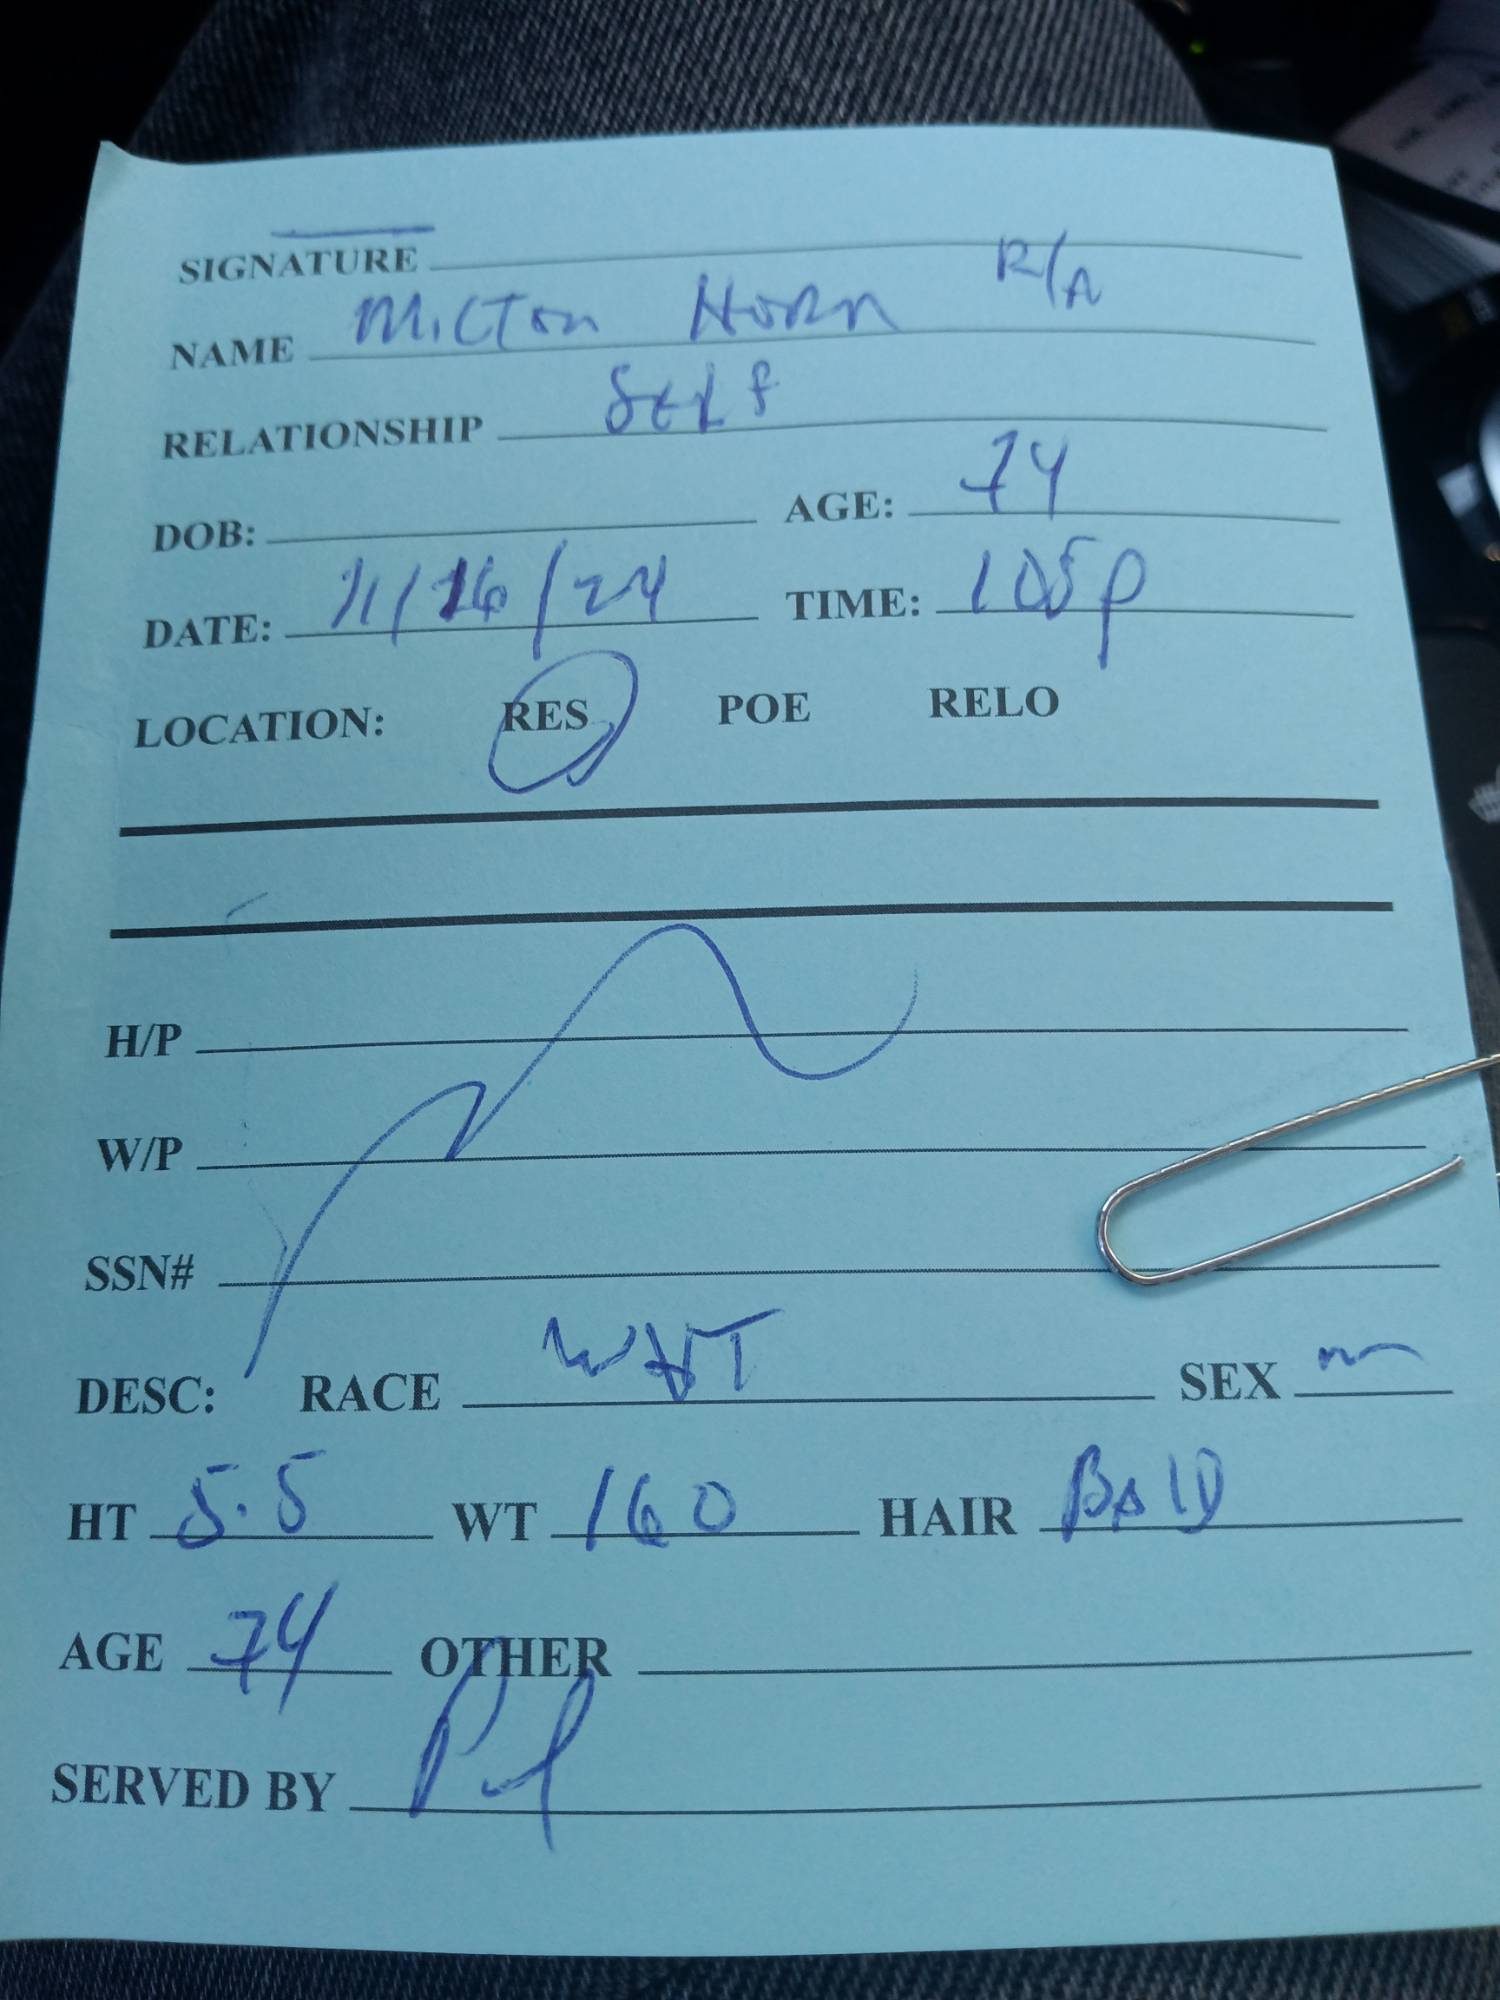 SIGNATURE
NAME Milton Horn R/A
RELATIONSHIP Self
DOB: AGE: 74
DATE: 11/16/24 TIME: 105p
LOCATION: RES POE RELO
H/P
W/P
SSN#
DESC: RACE WHT SEX m
HT 5.5 WT 160 HAIR BALD
AGE 74 OTHER
SERVED BY